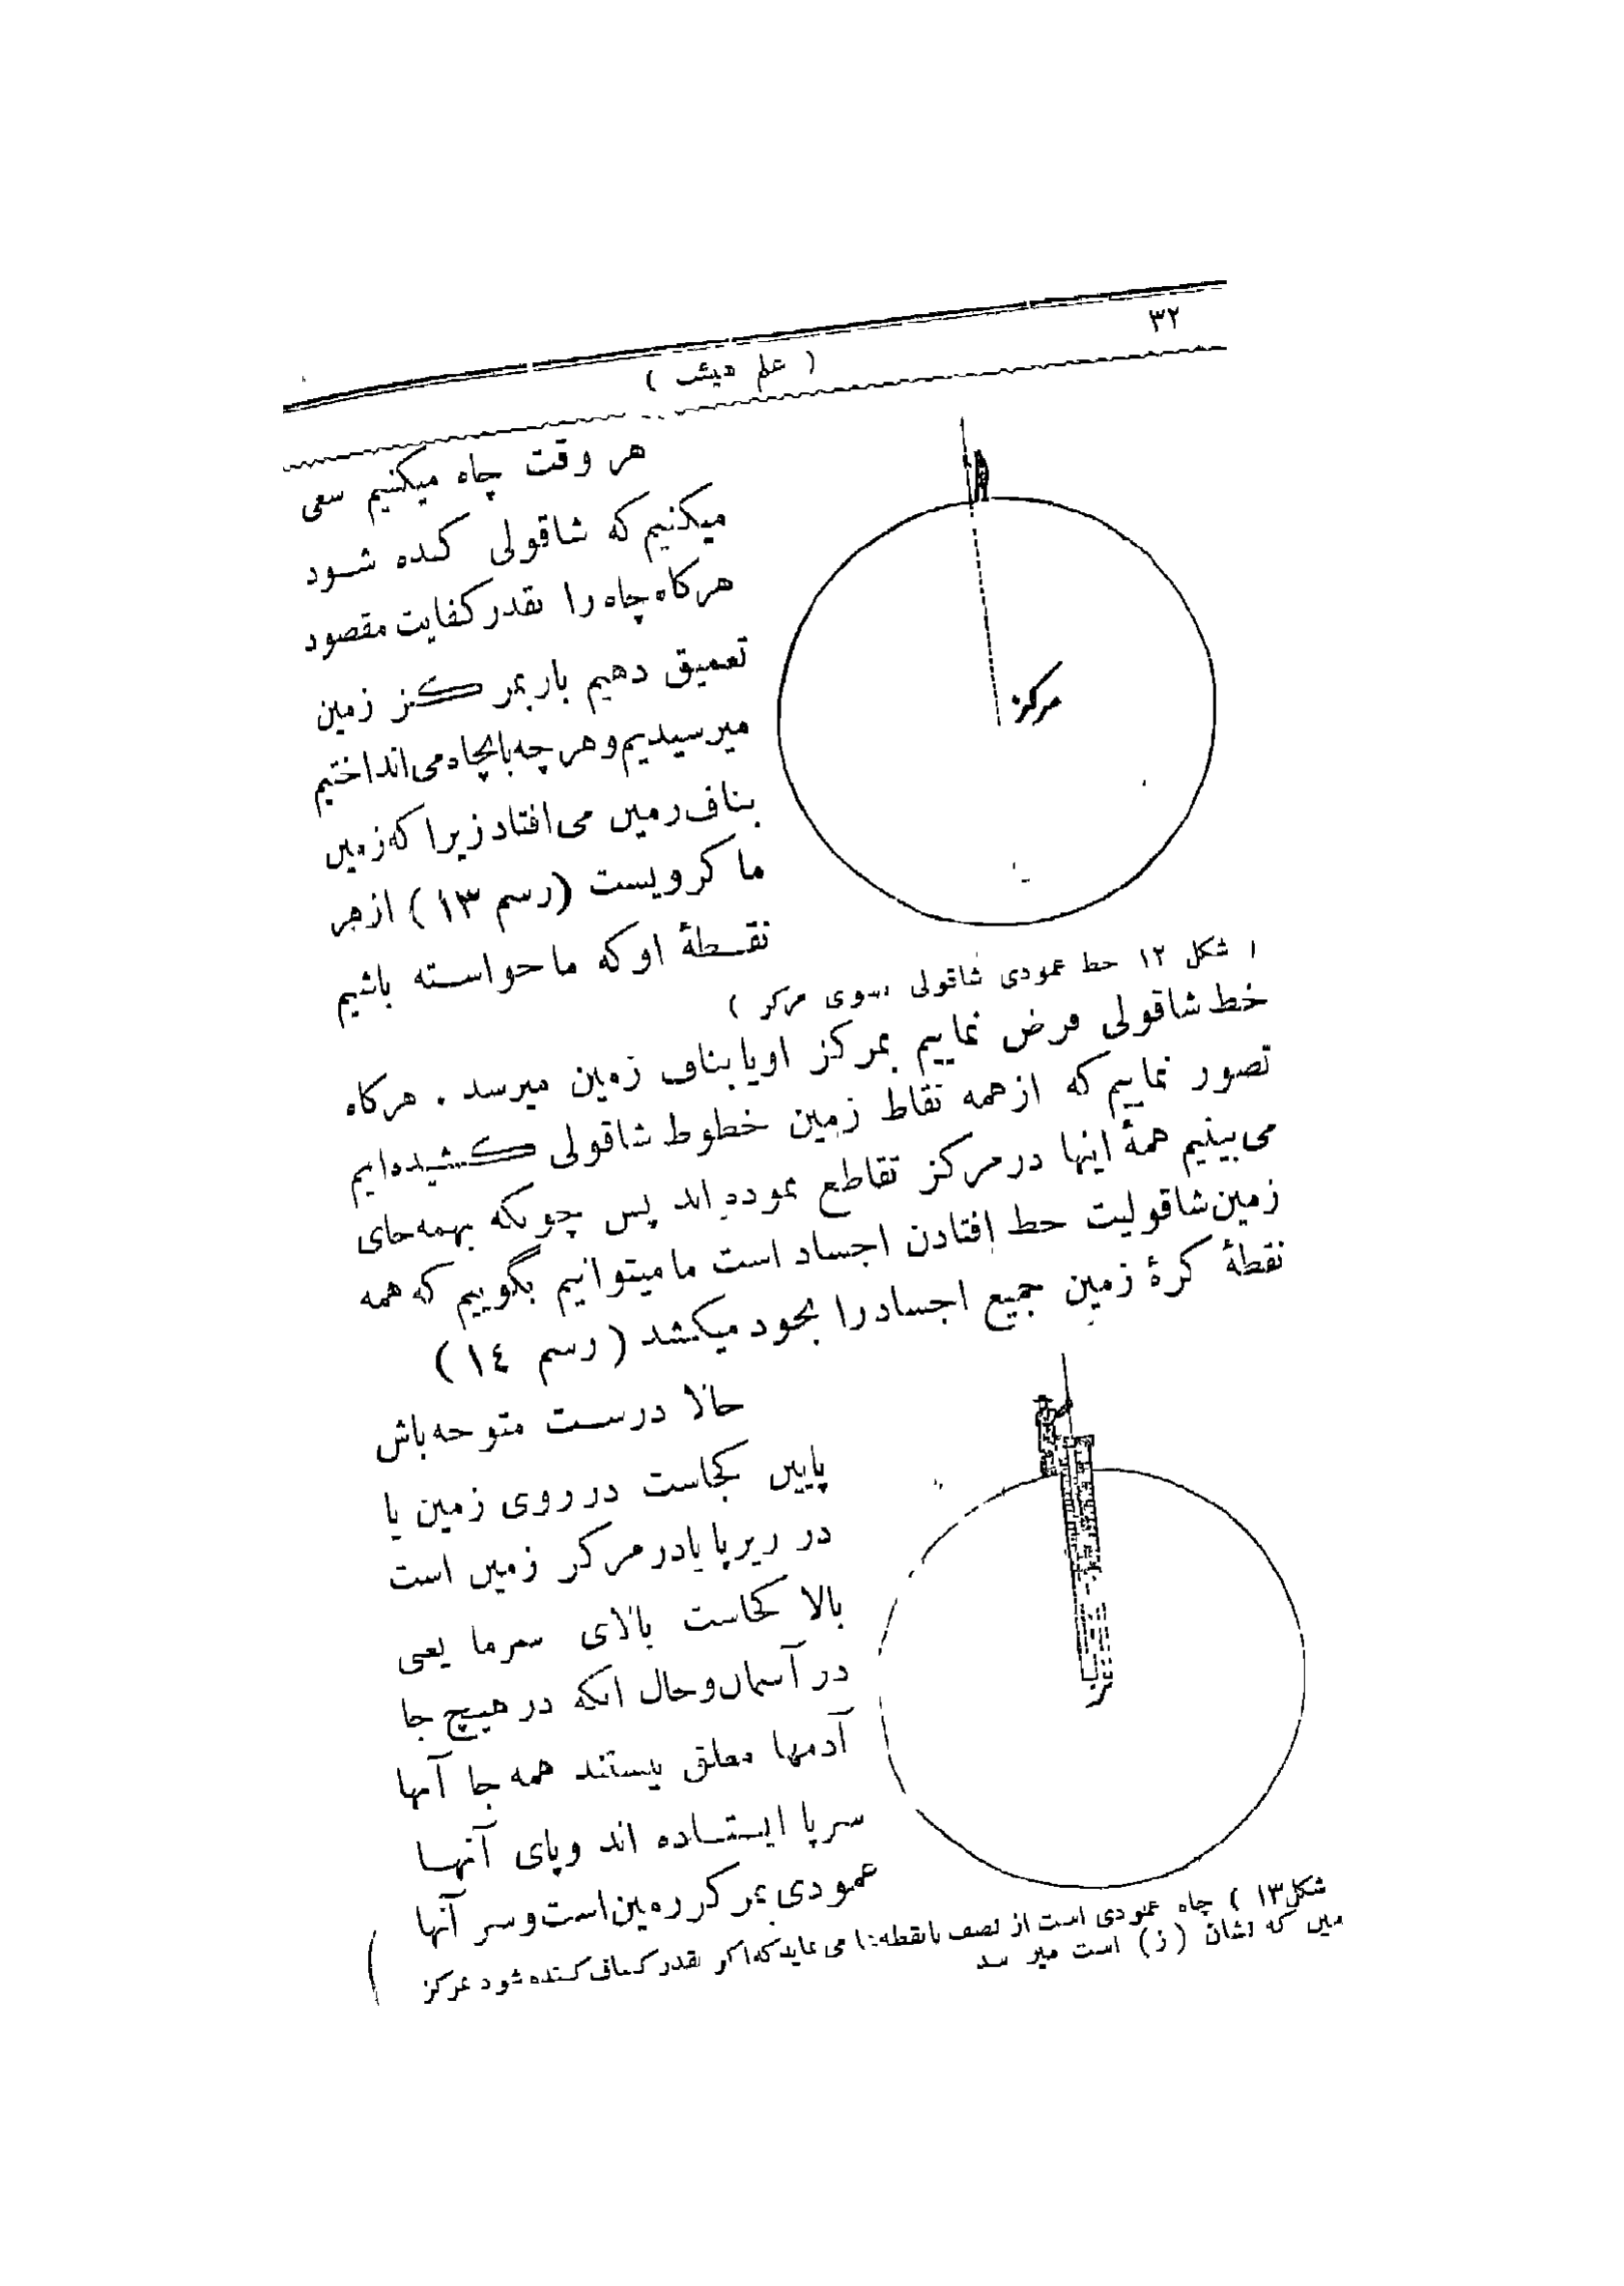 ۳۲
( علم هیئت )
هر وقت چاه میکنیم سعی
میکنیم که شاقولی کنده شود
هرکاه چاه را بقدر کفایت مقصود
تعمیق دهیم باز بمرکز زمین
میرسیدیم و هر چه بآنچاه می انداختیم
بناف زمین می افتاد زیرا که زمین
ما کرویست (رسم ۱۳) از هر
نقطۀ او که ما خواسته باشیم
مرکز
( شکل ۱۲ خط عمودی شاقولی بسوی مرکز )
خط شاقولی فرض نماییم بمرکز او یا بناف زمین میرسد . هرکاه
تصور نماییم که از همه نقاط زمین خطوط شاقولی کشیده ایم
می بینیم همۀ اینها در مرکز تقاطع نموده اند پس چونکه بهمه جای
زمین شاقولیت خط افتادن اجساد است ما میتوانیم بگوییم که همه
نقطۀ کرۀ زمین جمیع اجساد را بخود میکشد ( رسم ١٤ )
حالا درست متوجه باش
پایین کجاست در روی زمین یا
در زیر پا یا در مرکز زمین است
بالا کجاست بالای سر ما یعنی
در آسمان و حال انکه در هیچ جا
آدمها معلق نیستند همه جا آنها
سرپا ایستاده اند و پای آنها
عمودی بمرکز زمین است و سر آنها
ز
شکل ۱۳ ) چاه عمودی است از نصف تا نقطه می نماید که اگر بقدر کفاف کنده شود بمرکز
مین که نشان (ز) است میر سد